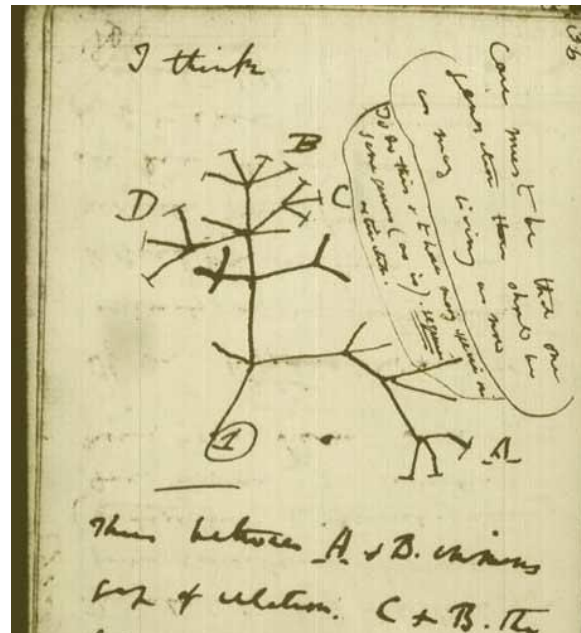 36
I think
Case must be that one
generation then should be
as many living as now
To do this & to have many species in
same genus (as is). requires
extinction.
B
C
D
A
1
Thus between A & B. immens
gap of relation. C & B. The